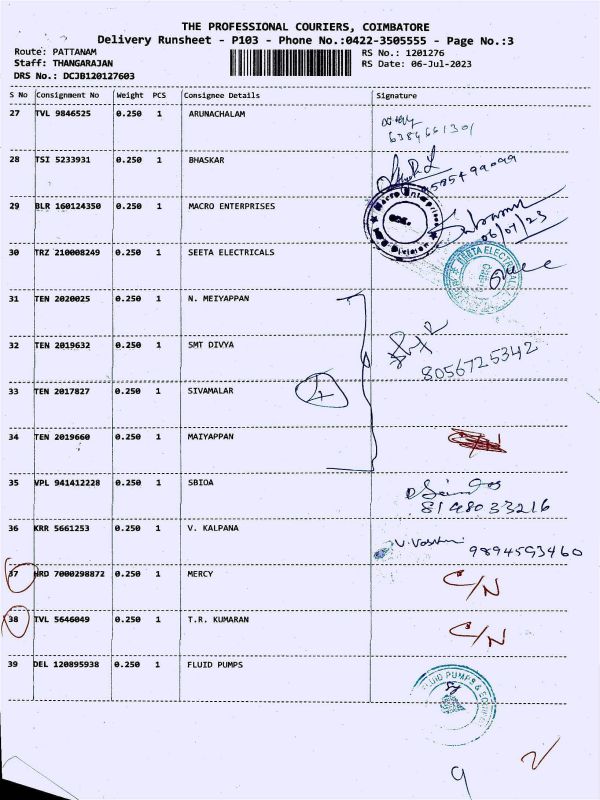 THE PROFESSIONAL COURIERS, COIMBATORE
Delivery Runsheet - P103 - Phone No.:0422-3505555 - Page No.:3
Route: PATTANAM RS No.: 1201276
Staff: THANGARAJAN RS Date: 06-Jul-2023
DRS No.: DCJB120127603
S No Consignment No Weight PCS Consignee Details Signature
27 TVL 9846525 0.250 1 ARUNACHALAM
6384661301
28 TSI 5233931 0.250 1 BHASKAR
9585499099
29 BLR 160124350 0.250 1 MACRO ENTERPRISES
Macro Enterprises
Division
06/07/23
30 TRZ 210008249 0.250 1 SEETA ELECTRICALS
SEETA ELECTRICALS
31 TEN 2020025 0.250 1 N. MEIYAPPAN
32 TEN 2019632 0.250 1 SMT DIVYA
8056725342
33 TEN 2017827 0.250 1 SIVAMALAR
34 TEN 2019660 0.250 1 MAIYAPPAN
C/N
35 VPL 941412228 0.250 1 SBIOA
8148033216
36 KRR 5661253 0.250 1 V. KALPANA
9894593460
37 HRD 7000298872 0.250 1 MERCY C/N
38 TVL 5646049 0.250 1 T.R. KUMARAN C/N
39 DEL 120895938 0.250 1 FLUID PUMPS
FLUID PUMPS &
9 2/